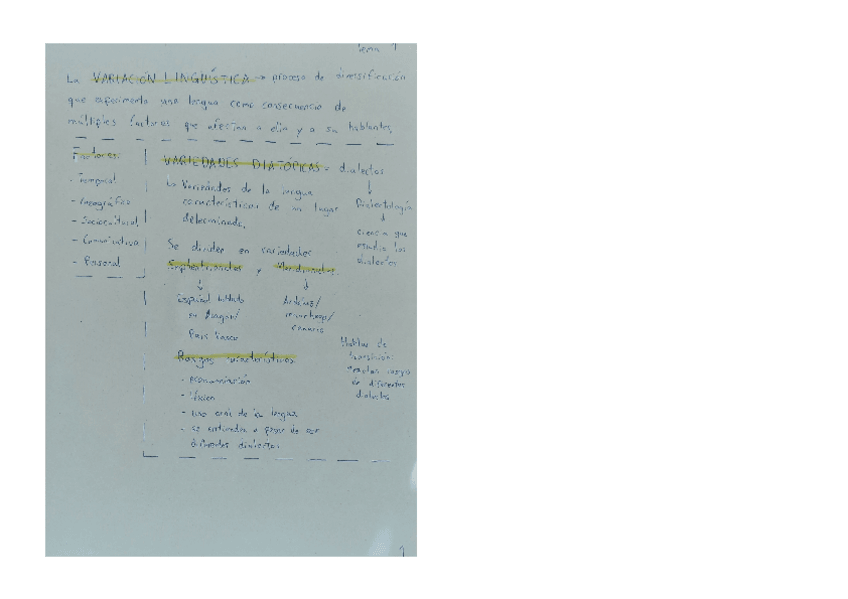 Tema 1
La VARIACIÓN LINGÜÍSTICA → proceso de diversificación
que experimenta una lengua como consecuencia de
múltiples factores que afectan a ella y a su hablantes.
Factores:
- Temporal
- Geográfico
- Sociocultural
- Comunicativa
- Personal
VARIEDADES DIATÓPICAS = dialectos
↳ Variedades de la lengua
características de un lugar
determinado.
Dialectología
ciencia que
estudia los
dialectos
Se dividen en variedades
Septentrionales y Meridionales
Español hablado
en Aragón/
País Vasco
Andaluz/
canario
Rasgos característicos
- economización
- léxico
- uso oral de la lengua
- se entienden a pesar de ser
diferentes dialectos.
Hablas de
transición:
rasgos
de diferentes
dialectos
1